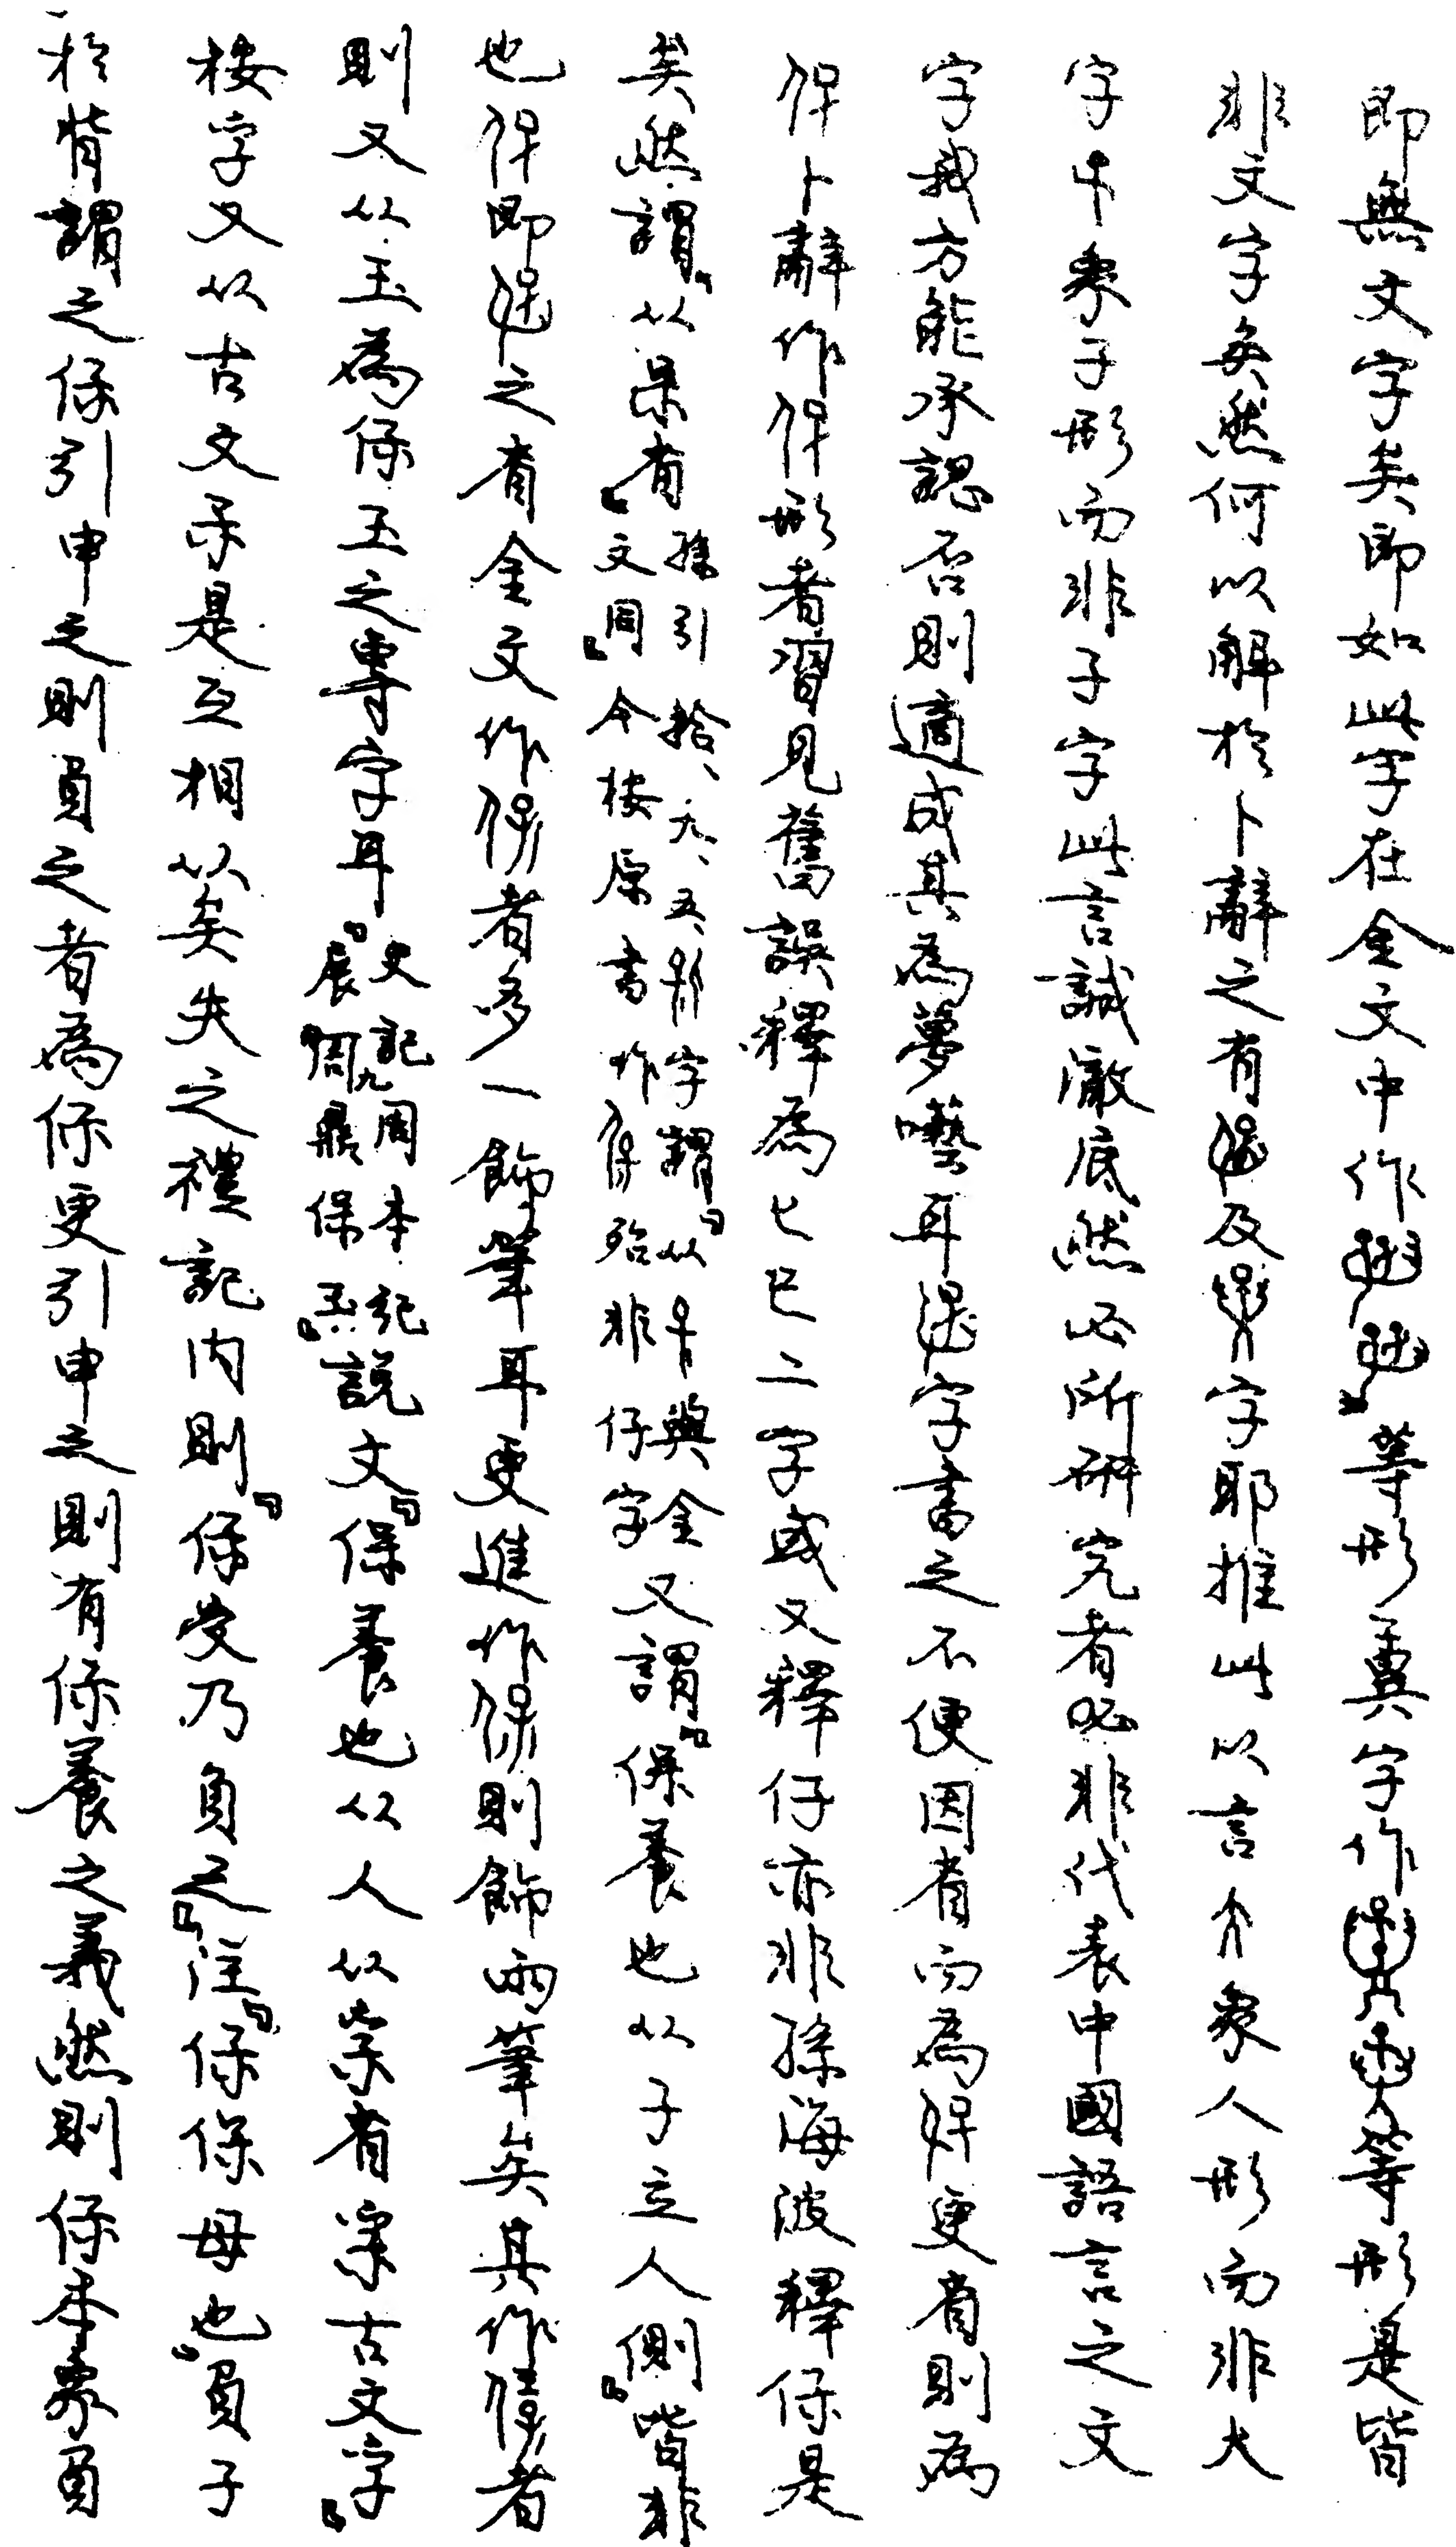 即無文字矣即如此字在金文中作等形異字作等形是皆
非文字矣然何以解於卜辭之有及字耶推此以言象人形而非大
字象子形而非子字此言誠澈底然必所研究者必非代表中國語言之文
字哉方能承認否則適成其為夢囈耳字書之不便因省而為更省則為
㑔卜辭作㑔形者習見舊誤釋為七巳二字或又釋仔亦非孫海波釋保是
矣然謂「从呆省
孫引拾、九、五、形字謂「从與金
文同」今按原書作殆非仔字
又謂「保養也从子立人側」皆非
也㑔即之省金文作者多一飾筆耳更進作保則飾兩筆矣其作者
則又从玉為保玉之專字耳
「史記周本記
展九鼎保玉」
說文「保養也从人从省古文字」
按字又从古文是互相从矣失之禮記內則「保受乃負之」注「保保母也」負子
於背謂之保引申之則負之者為保更引申之則有保養之義然則保本象負